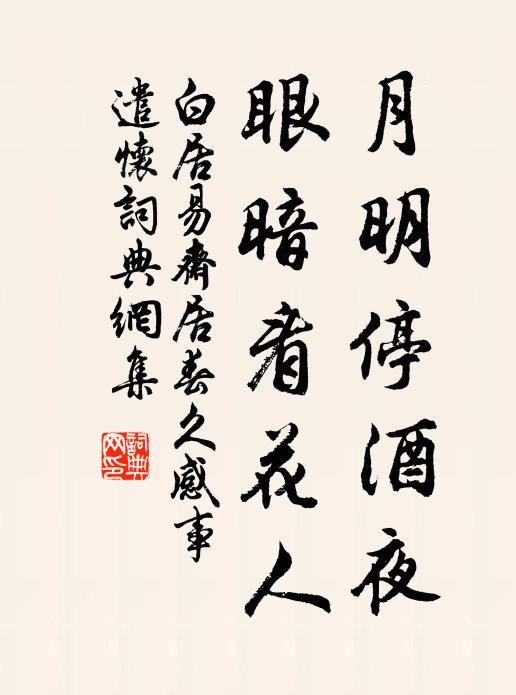 月明停酒夜
眼暗看花人
白居易齋居春久感事
遣懷詞典網集
詞典
网印